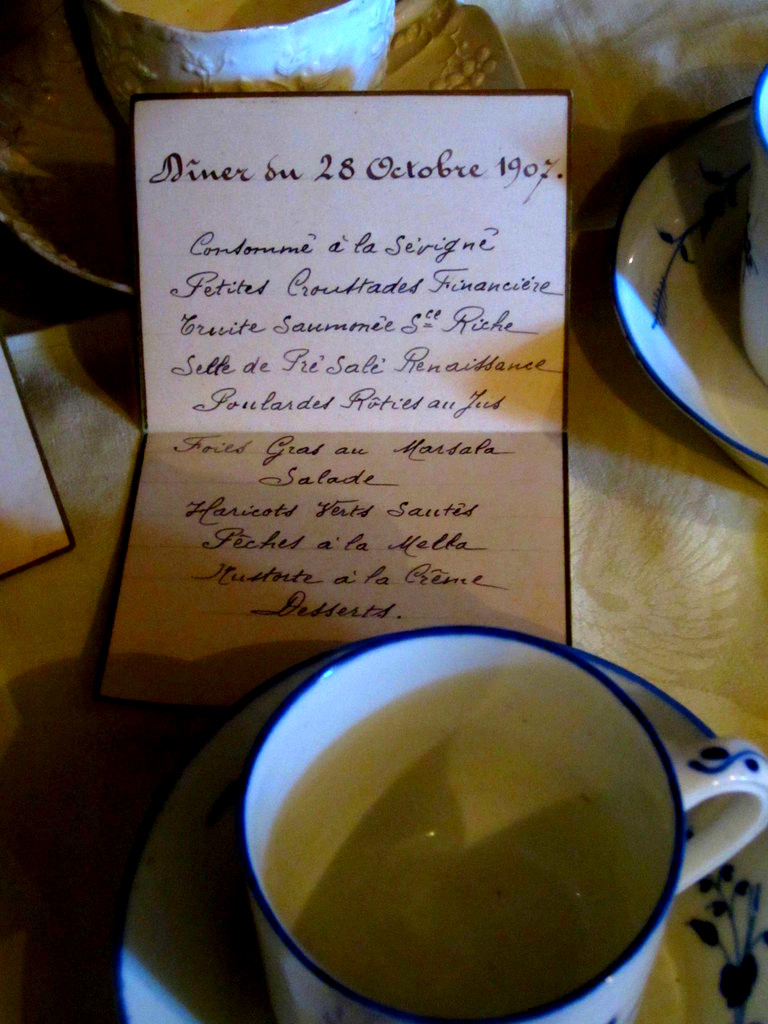 Dîner du 28 Octobre 1907.
Consommé à la Sévigné
Petites Croustades Financière
Truite Saumonée Sce Riche
Selle de Pré Salé Renaissance
Poulardes Rôties au Jus
Foies Gras au Marsala
Salade
Haricots Verts Sautés
Pêches à la Melba
à la Crême
Desserts.